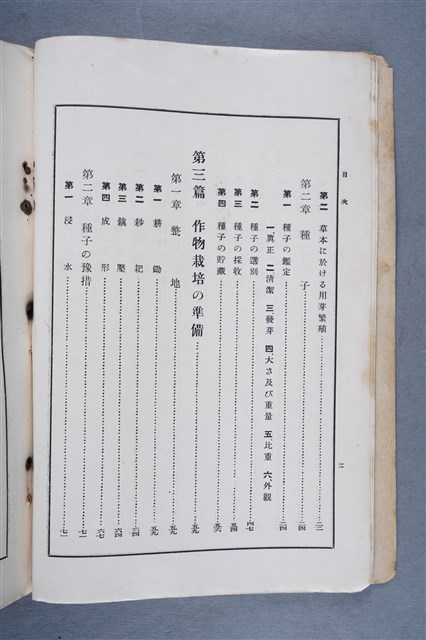 目次
二
第二 草本に於ける用芽繁殖
第二章 種子
第一 種子の鑑定
一、眞正 二、清潔 三、發芽 四、大さ及び重量 五、比重 六、外觀
第二 種子の選別
第三 種子の採收
第四 種子の貯藏
第三篇 作物栽培の準備
第一章 整地
第一 耕鋤
第二 耖耙
第三 鎭壓
第四 成形
第二章 種子の豫措
第一 浸水